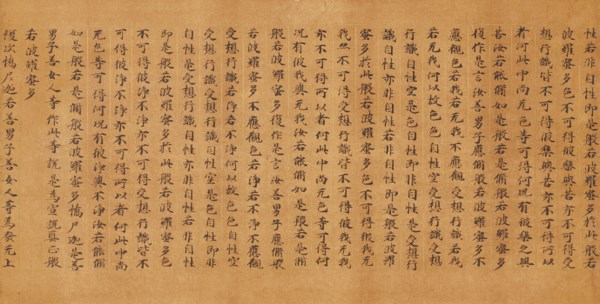 性若非自性即是般若波羅蜜多於此般若
波羅蜜多色不可得彼樂與苦亦不可得受
想行識皆不可得彼樂與苦亦不可得所以
者何此中尚无色等可得何況有彼樂之與
苦汝若能脩如是般若是脩般若波羅蜜多
復作是言汝善男子應脩般若波羅蜜多不
應觀色若我若无我不應觀受想行識若我
若无我何以故色色自性空受想行識受想
行識自性空是色自性即非自性是受想行
識自性亦非自性若非自性即是般若波羅
蜜多於此般若波羅蜜多色不可得彼我无
我亦不可得受想行識皆不可得彼我无我
亦不可得所以者何此中尚无色等可得何
況有彼我與无我汝若能脩如是般若是脩
般若波羅蜜多復作是言汝善男子應脩般
若波羅蜜多不應觀色若淨若不淨不應觀
受想行識若淨若不淨何以故色色自性空
受想行識受想行識自性空是色自性即非
自性是受想行識自性亦非自性若非自性
即是般若波羅蜜多於此般若波羅蜜多色
不可得彼淨不淨亦不可得受想行識皆不
可得彼淨不淨亦不可得所以者何此中尚
无色等可得何況有彼淨與不淨汝若能脩
如是般若是脩般若波羅蜜多憍尸迦是善
男子善女人等作此等說是為宣說真正般
若波羅蜜多
復次憍尸迦若善男子善女人等為發无上